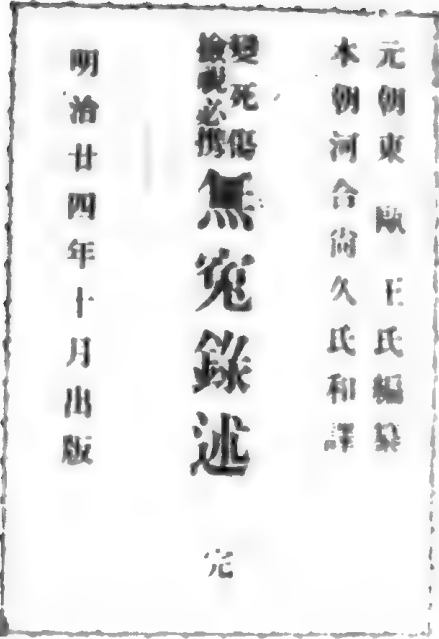 元朝東甌王氏編纂
本朝河合尚久氏和譯
變死傷
檢視必携
無冤錄述 完
明治廿四年十月出版